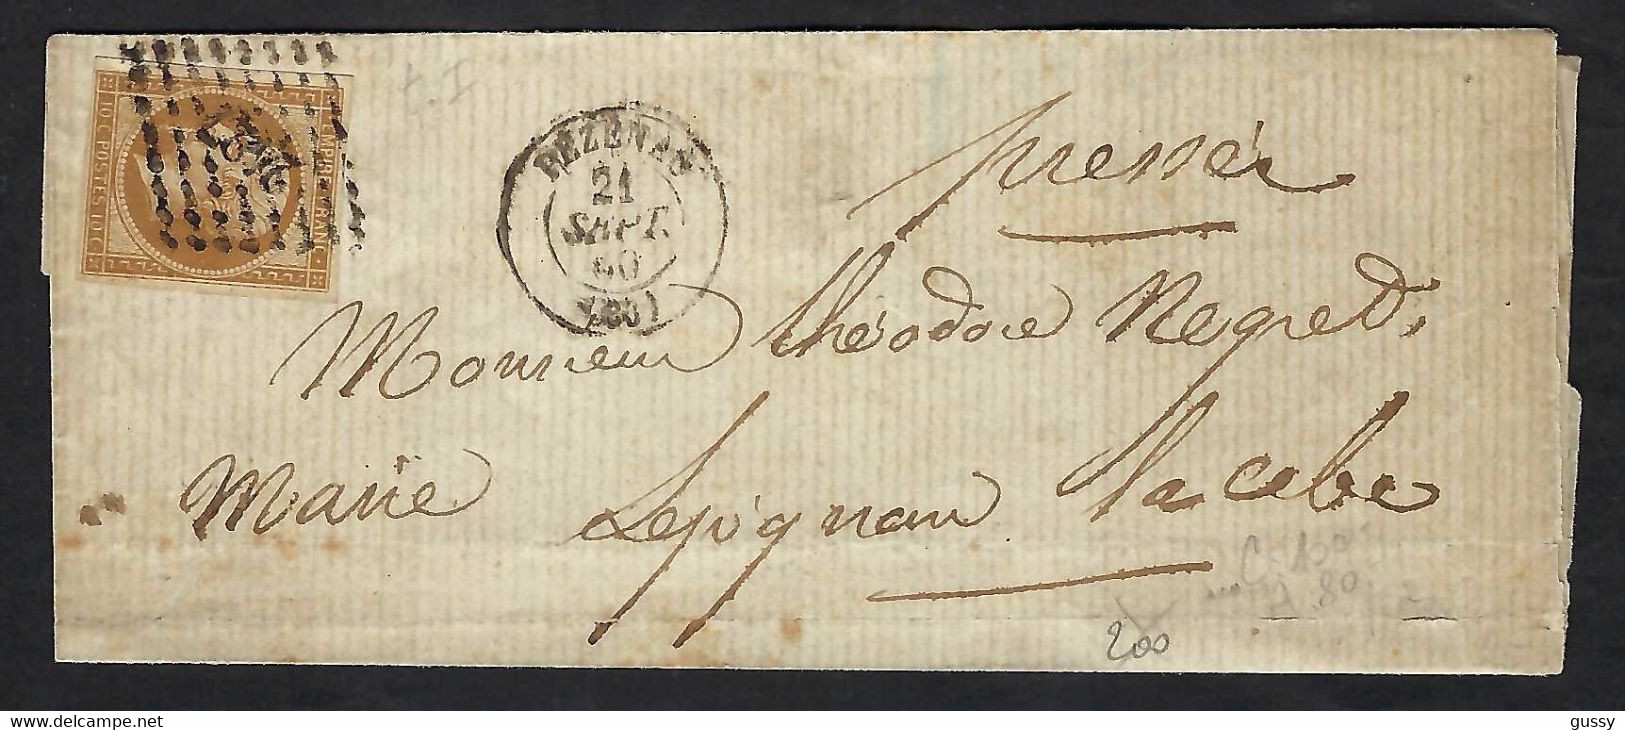 t. I
EMPIRE FRANC
10 C POSTES 10 C
PEZENAS
21
SEPT.
60
(33)
pressée
Monsieur Théodore Negret,
Maire Lespignan La cabe
C. 100
F. 80
200
www.delcampe.net
gussy